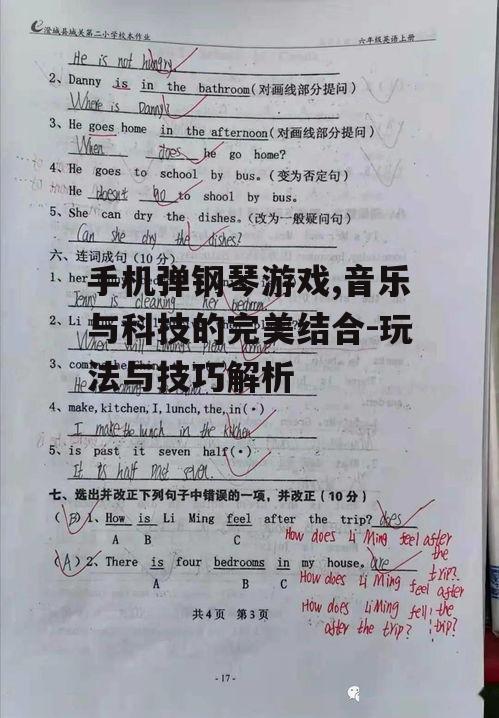 澄城县城关第二小学校本作业 六年级英语上册
He is not hungry
2、Danny is in the bathroom(对画线部分提问)
Where is Danny?
3、He goes home in the afternoon(对画线部分提问)
When does he go home?
4、He goes to school by bus.(变为否定句)
He doesn't go to shool by bus.
5、She can dry the dishes.(改为一般疑问句)
Can she dry the dishes?
六、连词成句(10分)
手机弹钢琴游戏,音乐
与科技的完美结合-玩
法与技巧解析
1、her
Jenny is cleaning her bedroom
2、Li
3、com
4、make,kitchen,I,lunch,the,in(•)
I make the lunch in the kitchen
5、is past it seven half(•)
It is half past seven.
七、选出并改正下列句子中错误的一项,并改正(10分)
(B)1、How is Li Ming feel after the trip? does
A B C
How does Li Ming feel after
the
trip?
(A)2、There is four bedrooms in my house. are
A B C
How does Li Ming feel after
How does Li Ming fell the
after the trip? trip?
共4页 第3页
-17-